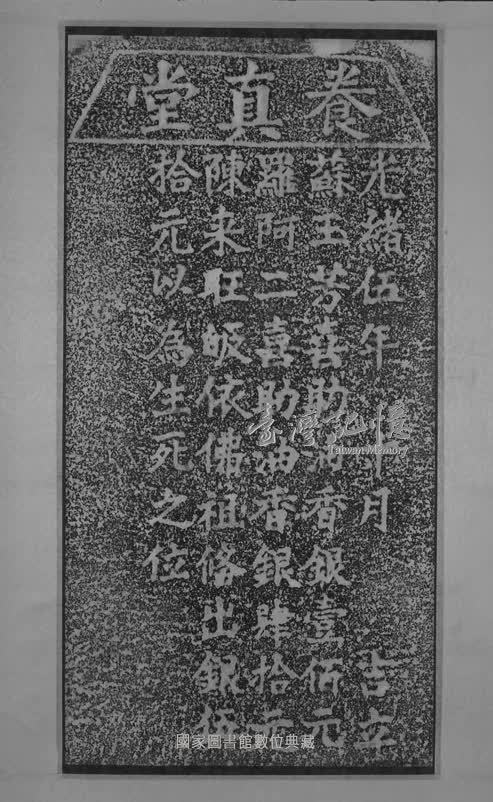 養真堂
光緒伍年 月 吉立
蘇玉芳喜助油香銀壹佰元
羅阿二喜助油香銀肆拾元
陳来旺皈依佛祖俻出銀伍
拾元以為生死之位
臺灣記憶
Taiwan Memory
國家圖書館數位典藏